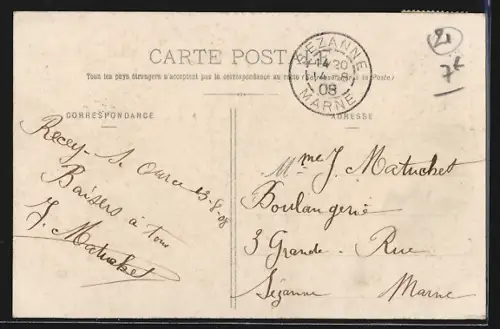 CARTE POSTALE
Tous les pays étrangers n'acceptent pas la correspondance au recto
CORRESPONDANCE
ADRESSE
SEZANNE
14 20
14-8
08
MARNE
21
7€
Recey-s-Ource 13-8-08
Baisers à tous
J. Matuchet
Mme J. Matuchet
Boulangerie
3 Grande-Rue
Sézanne Marne